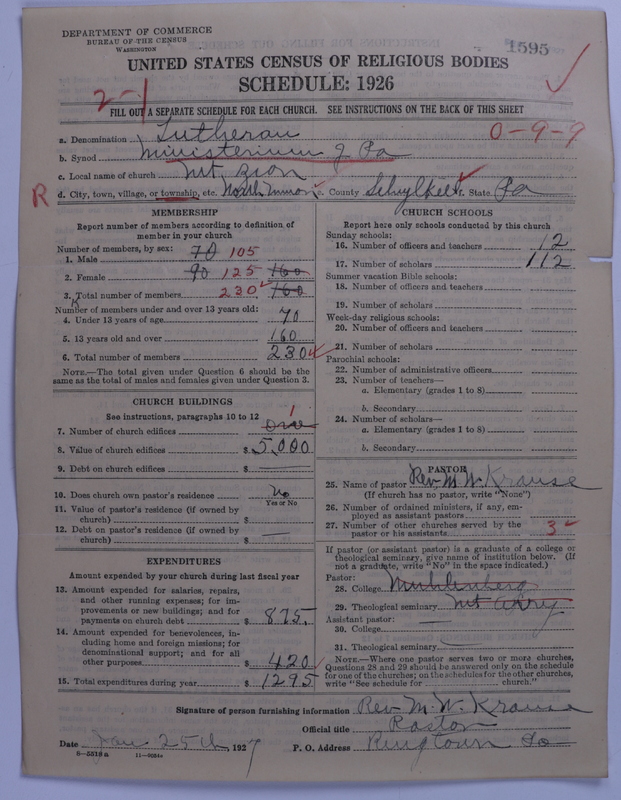 DEPARTMENT OF COMMERCE
BUREAU OF THE CENSUS
WASHINGTON
1595
UNITED STATES CENSUS OF RELIGIOUS BODIES
SCHEDULE: 1926
2-1
FILL OUT A SEPARATE SCHEDULE FOR EACH CHURCH. SEE INSTRUCTIONS ON THE BACK OF THIS SHEET
0-9-9
a. Denomination Lutheran
b. Synod Ministerium of Pa
c. Local name of church Mt. Zion
R d. City, town, village, or township, etc. North Union e. County Schuylkill f. State Pa
MEMBERSHIP
Report number of members according to definition of member in your church
Number of members, by sex:
1. Male 70 105
2. Female 90 125 160
3. Total number of members 230 160
Number of members under and over 13 years old:
4. Under 13 years of age 70
5. 13 years old and over 160
6. Total number of members 230
NOTE.—The total given under Question 6 should be the same as the total of males and females given under Question 3.
CHURCH BUILDINGS
See instructions, paragraphs 10 to 12
7. Number of church edifices One 1
8. Value of church edifices $ 5,000
9. Debt on church edifices $
10. Does church own pastor's residence No
Yes or No
11. Value of pastor's residence (if owned by church) $
12. Debt on pastor's residence (if owned by church) $
EXPENDITURES
Amount expended by your church during last fiscal year
13. Amount expended for salaries, repairs, and other running expenses; for improvements or new buildings; and for payments on church debt $ 875.
14. Amount expended for benevolences, including home and foreign missions; for denominational support; and for all other purposes $ 420
15. Total expenditures during year $ 1295
CHURCH SCHOOLS
Report here only schools conducted by this church
Sunday schools:
16. Number of officers and teachers 12
17. Number of scholars 112
Summer vacation Bible schools:
18. Number of officers and teachers
19. Number of scholars
Week-day religious schools:
20. Number of officers and teachers
21. Number of scholars
Parochial schools:
22. Number of administrative officers
23. Number of teachers—
a. Elementary (grades 1 to 8)
b. Secondary
24. Number of scholars—
a. Elementary (grades 1 to 8)
b. Secondary
PASTOR
25. Name of pastor Rev. M. W. Krause
(If church has no pastor, write "None")
26. Number of ordained ministers, if any, employed as assistant pastors
27. Number of other churches served by the pastor or his assistants 3
If pastor (or assistant pastor) is a graduate of a college or theological seminary, give name of institution below. (If not a graduate, write "No" in the space indicated.)
Pastor:
28. College Muhlenberg
29. Theological seminary Mt Airy
Assistant pastor:
30. College
31. Theological seminary
NOTE.—Where one pastor serves two or more churches, Questions 28 and 29 should be answered only on the schedule for one of the churches; on the schedules for the other churches, write "See schedule for church."
Signature of person furnishing information Rev. M. W. Krause
Official title Pastor
Date Jan 25th, 1927 P. O. Address Ringtown Pa
8-5518a 11-9054